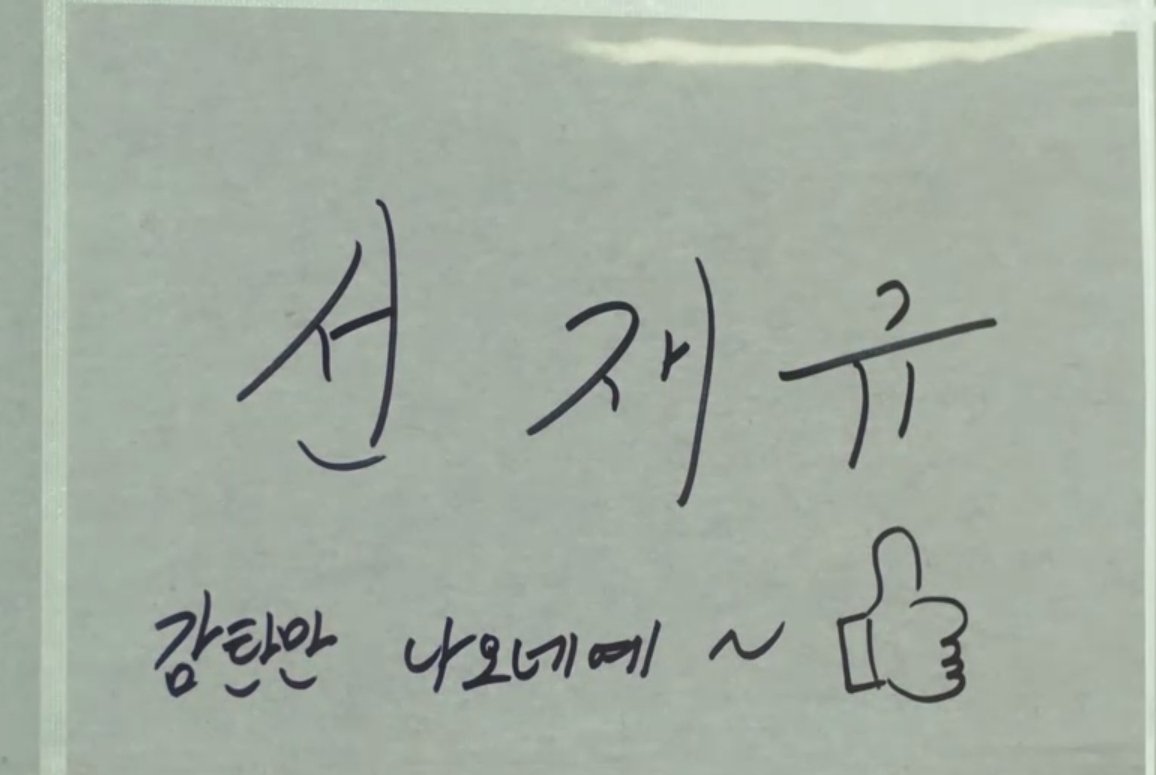 선재규
감탄만 나오네예~